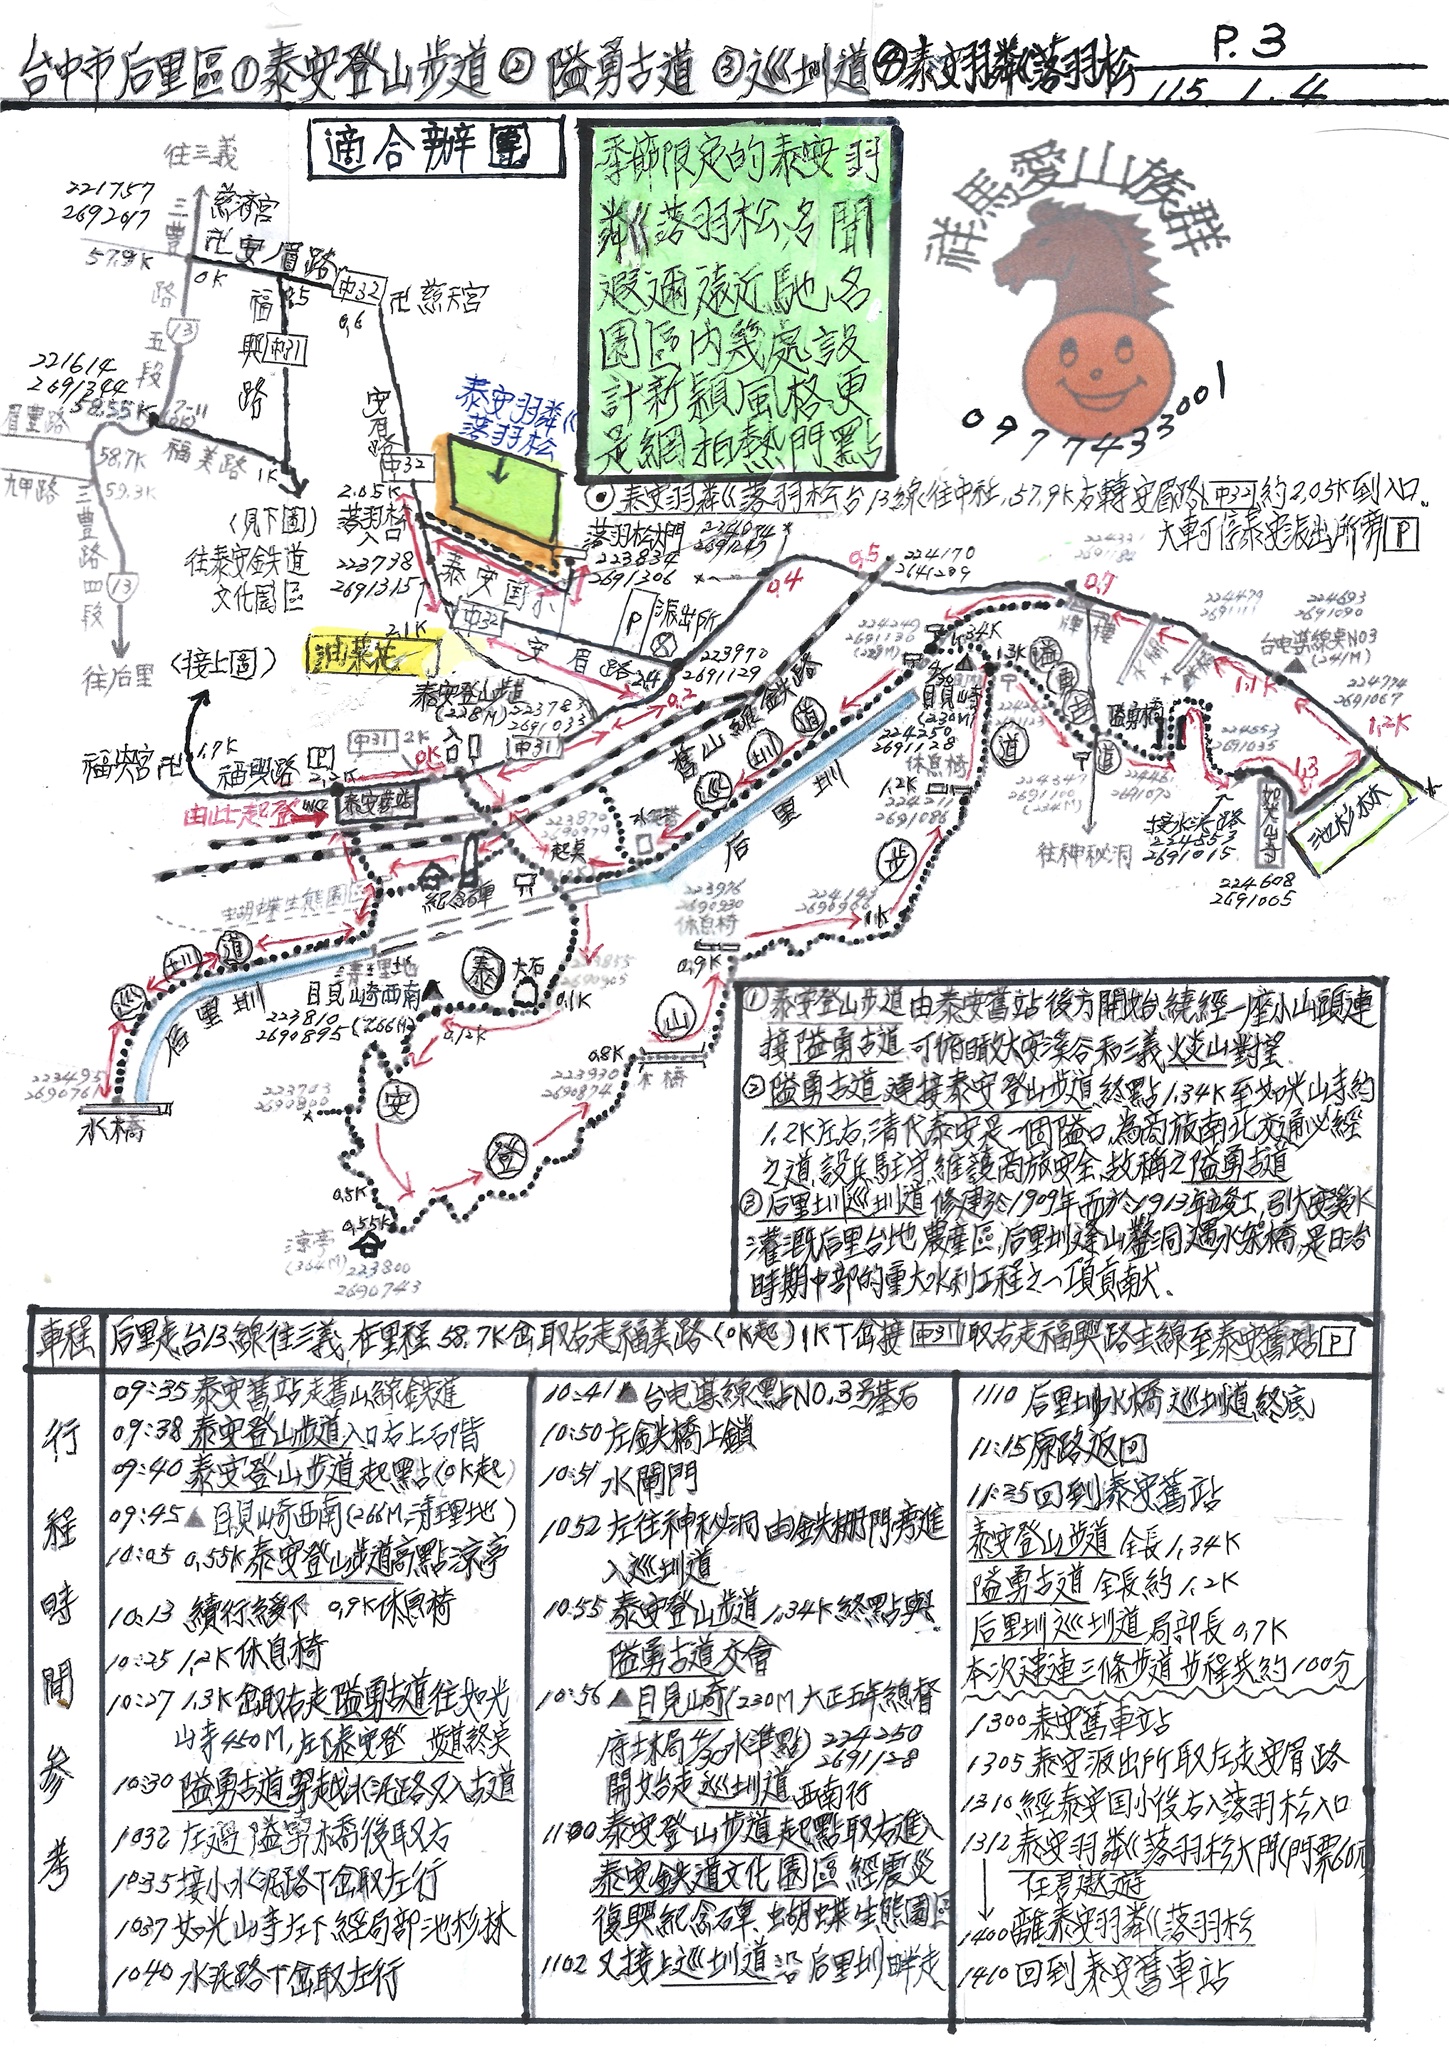 台中市后里區①泰安登山步道②隘勇古道③巡圳道④泰安羽粼巛落羽松
P.3
115.1.4
適合辦團
季節限定的泰安羽
粼巛落羽松,名聞
遐邇遠近馳名
園區內幾處設
計新穎風格更
是網拍熱門點
祥馬愛山族群
0977433001
⊙泰安羽粼巛落羽松台13線往中社,57.9K右轉安眉路中32約2.05K到入口.
大車可停泰安派出所旁P
往三義
221757
2692617
慈濟宮
卍安眉路
57.9K
0K
三豐路五段
13
福興路
中31
中32
0.6
卍慈天宮
221614
2691344
58.55K
7-11
0K
眉豐路
58.7K
福美路
1K
九甲路
59.3K
三豐路四段
13
往后里
(見下圖)
往泰安鉄道
文化園區
安眉路
中32
泰安羽粼巛
落羽松
2.05K
落羽松
入口
223738
2691315
落羽松大門
223834
2691306
泰安国小
中32
2.1K
油菜花
安眉路
P
派出所
2.4
223970
2691129
0.2
0.4
0.5
0.7
1.1K
1.2K
1.3
(接上圖)
福興宮卍
1.7K
福興路
2.2K
P
中31
2K
0K
入口
中31
泰安登山步道
(228M)
223783
2691033
由此起登
WC
泰安舊站
舊山線鉄路
巡圳道
后里圳
紀念碑
蝴蝶生態園區
223870
2690979
起點
水泥塔
巡圳道
后里圳
223495
2690761
水橋
清理地
目見山崎西南
223810
2690895(266M)
大石
0.1K
0.12K
泰安登山步道
223743
2690800
0.5K
0.55K
涼亭
(304M)
223800
2690743
223930
2690874
0.8K
木橋
0.9K
223976
2690930
休息椅
224143
2690966
1K
1.2K
休息椅
224211
2691086
224249
2691136
(228M)
1.34K
1.3K
目見崎
(230M)
224250
2691128
隘勇古道
隘勇橋
往神秘洞
224347
2691100
(234M)
224461
2691072
接水泥路
224553
2691015
224553
2691035
如光山寺
224608
2691005
池杉林
224479
2691111
224693
2691090
台电導線點NO3
(241M)
224774
2691067
①泰安登山步道由泰安舊站後方開始,繞經一座小山頭連
接隘勇古道.可俯瞰大安溪谷和三義火炎山對望.
②隘勇古道連接泰安登山步道終點1.34K至如光山寺約
1.2K左右,清代泰安是一個隘口,為商旅南北交通必經
之道,設兵駐守,維護商旅安全,故稱之隘勇古道
③后里圳巡圳道修建於1909年而於1913年竣工,引大安溪水
灌溉后里台地農產區,后里圳逢山鑿洞遇水架橋,是日治
時期中部的重大水利工程之一項貢献.
車程
后里走台13線往三義,在里程58.7K岔取右走福美路(0K起)1K下岔接中31取右走福興路主線至泰安舊站P
行程時間參考
09:35泰安舊站走舊山線鉄道
09:38泰安登山步道入口右上石階
09:40泰安登山步道起點(0K起)
09:45▲目見山崎西南(266M,清理地)
10:05 0.55K泰安登山步道高點涼亭
10:13 續行緩下 0.9K休息椅
10:25 1.2K休息椅
10:27 1.3K岔取右走隘勇古道往如光
山寺450M,左下泰安登 步道終點
10:30隘勇古道穿越水泥路又入古道
1032左過隘勇木橋後取右
1035接小水泥路下岔取左行
1037如光山寺左下經局部池杉林
1040水泥路下岔取左行
10:41▲台电導線點NO.3号基石
10:50左鉄橋上鎖
10:51水閘門
1052左往神秘洞由鉄柵門旁進
入巡圳道
10:55泰安登山步道1.34K終點與
隘勇古道交會
10:56▲目見崎(230M大正五年總督
府土木局4/30水準點)224250
2691128
開始走巡圳道西南行
1100泰安登山步道起點取右進入
泰安鉄道文化園區經震災
復興紀念碑、蝴蝶生態園區
1102又接上巡圳道沿后里圳畔走
1110后里圳水橋巡圳道終底
11:15原路返回
11:35回到泰安舊站
泰安登山步道全長1.34K
隘勇古道全長約1.2K
后里圳巡圳道局部長0.7K
本次連連三條步道步程共約100分
1300泰安舊車站
1305泰安派出所取左走安眉路
1310經泰安国小後右入落羽松入口
1312泰安羽粼巛落羽松大門(門票60元)
任君遨遊
1400離泰安羽粼巛落羽松
1410回到泰安舊車站